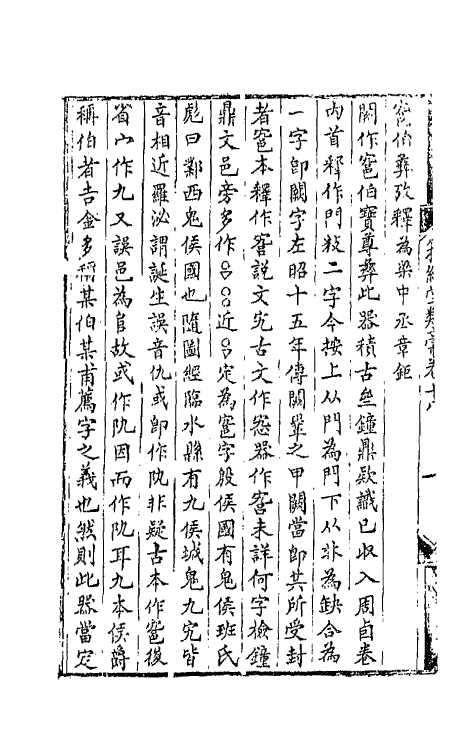 窓伯彝攷釋為梁中丞章鉅
闕作窓伯寶尊彝此器積古齋鐘鼎欵識已收入周卣卷
內首釋作門敄二字今按上从門為門下从非為缺合為
一字卽闕字左昭十五年傳闕鞏之甲闕當卽其所受封
者窓本釋作窖說文宄古文作怒器作窖未詳何字檢鐘
鼎文邑旁多作近定為窓字殷侯國有鬼侯班氏
彪曰鄴西鬼侯國也隨圖經臨水縣有九侯城鬼九宄皆
音相近羅泌謂誕生誤音仇或卽作阬非疑古本作窓後
省宀作九又誤邑為㠯故或作阬因而作阬耳九本侯爵
稱伯者吉金多稱某伯某甫薦字之義也然則此器當定